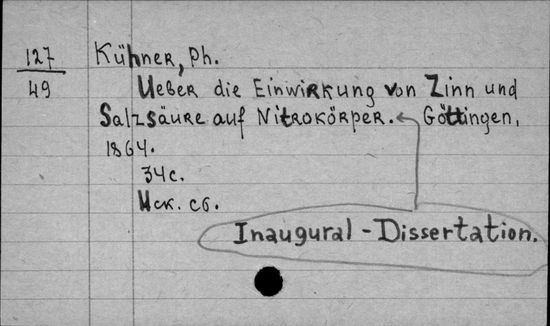 127
49
Kühner, Ph.
Ueber die Einwirkung von Zinn und
Salzsäure auf Nitrokörper. Göttingen,
1864.
34с.
Иск. сб.
Inaugural-Dissertation.